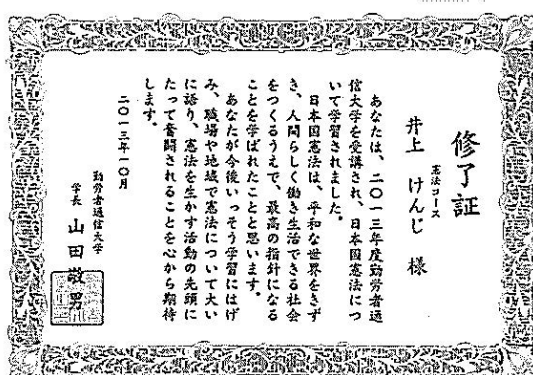 修了証
憲法コース
井上 けんじ 様
あなたは、二〇一三年度勤労者通
信大学を受講され、日本国憲法につ
いて学習されました。
日本国憲法は、平和な世界をきず
き、人間らしく働き生活できる社会
をつくるうえで、最高の指針になる
ことを学ばれたことと思います。
あなたが今後いっそう学習にはげ
み、職場や地域で憲法について大い
に語り、憲法を生かす活動の先頭に
たって奮闘されることを心から期待
します。
二〇一三年一〇月
勤労者通信大学
学長 山田敬男